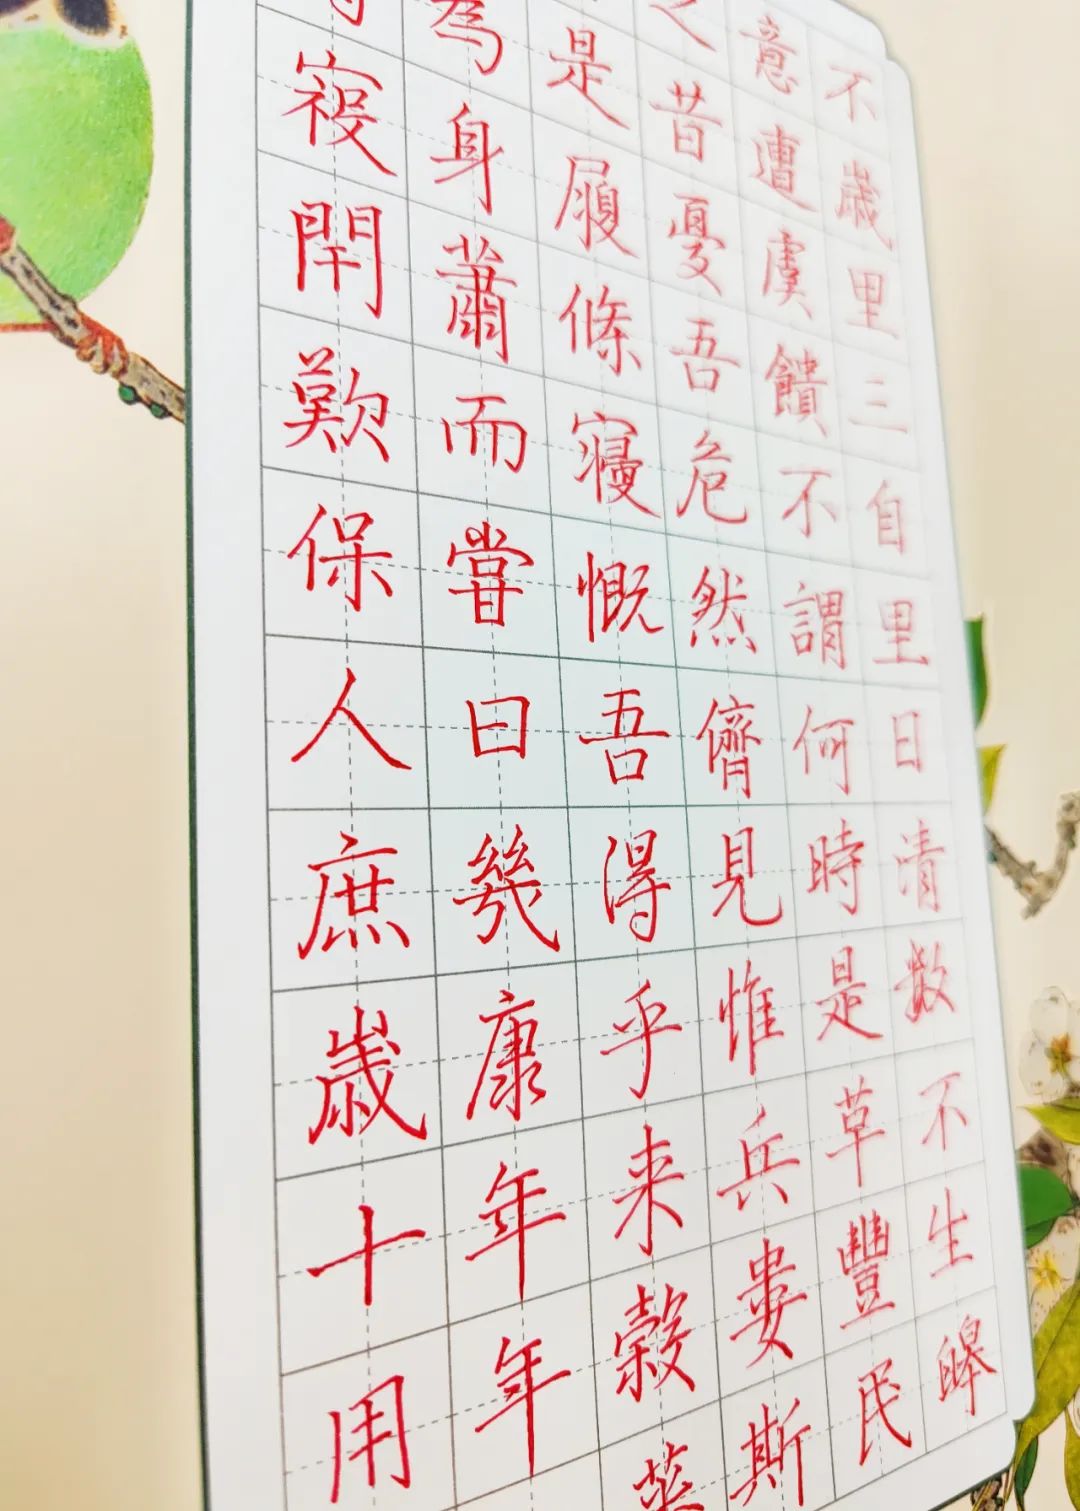 不歲里三自里日清数不生皞
意遭虞饋不謂何時是草豐民
之昔憂吾危然儕見惟兵婁斯
是履條寢慨吾得乎来穀
為身蕭而嘗曰幾康年年
閈歎保人庶歲十用